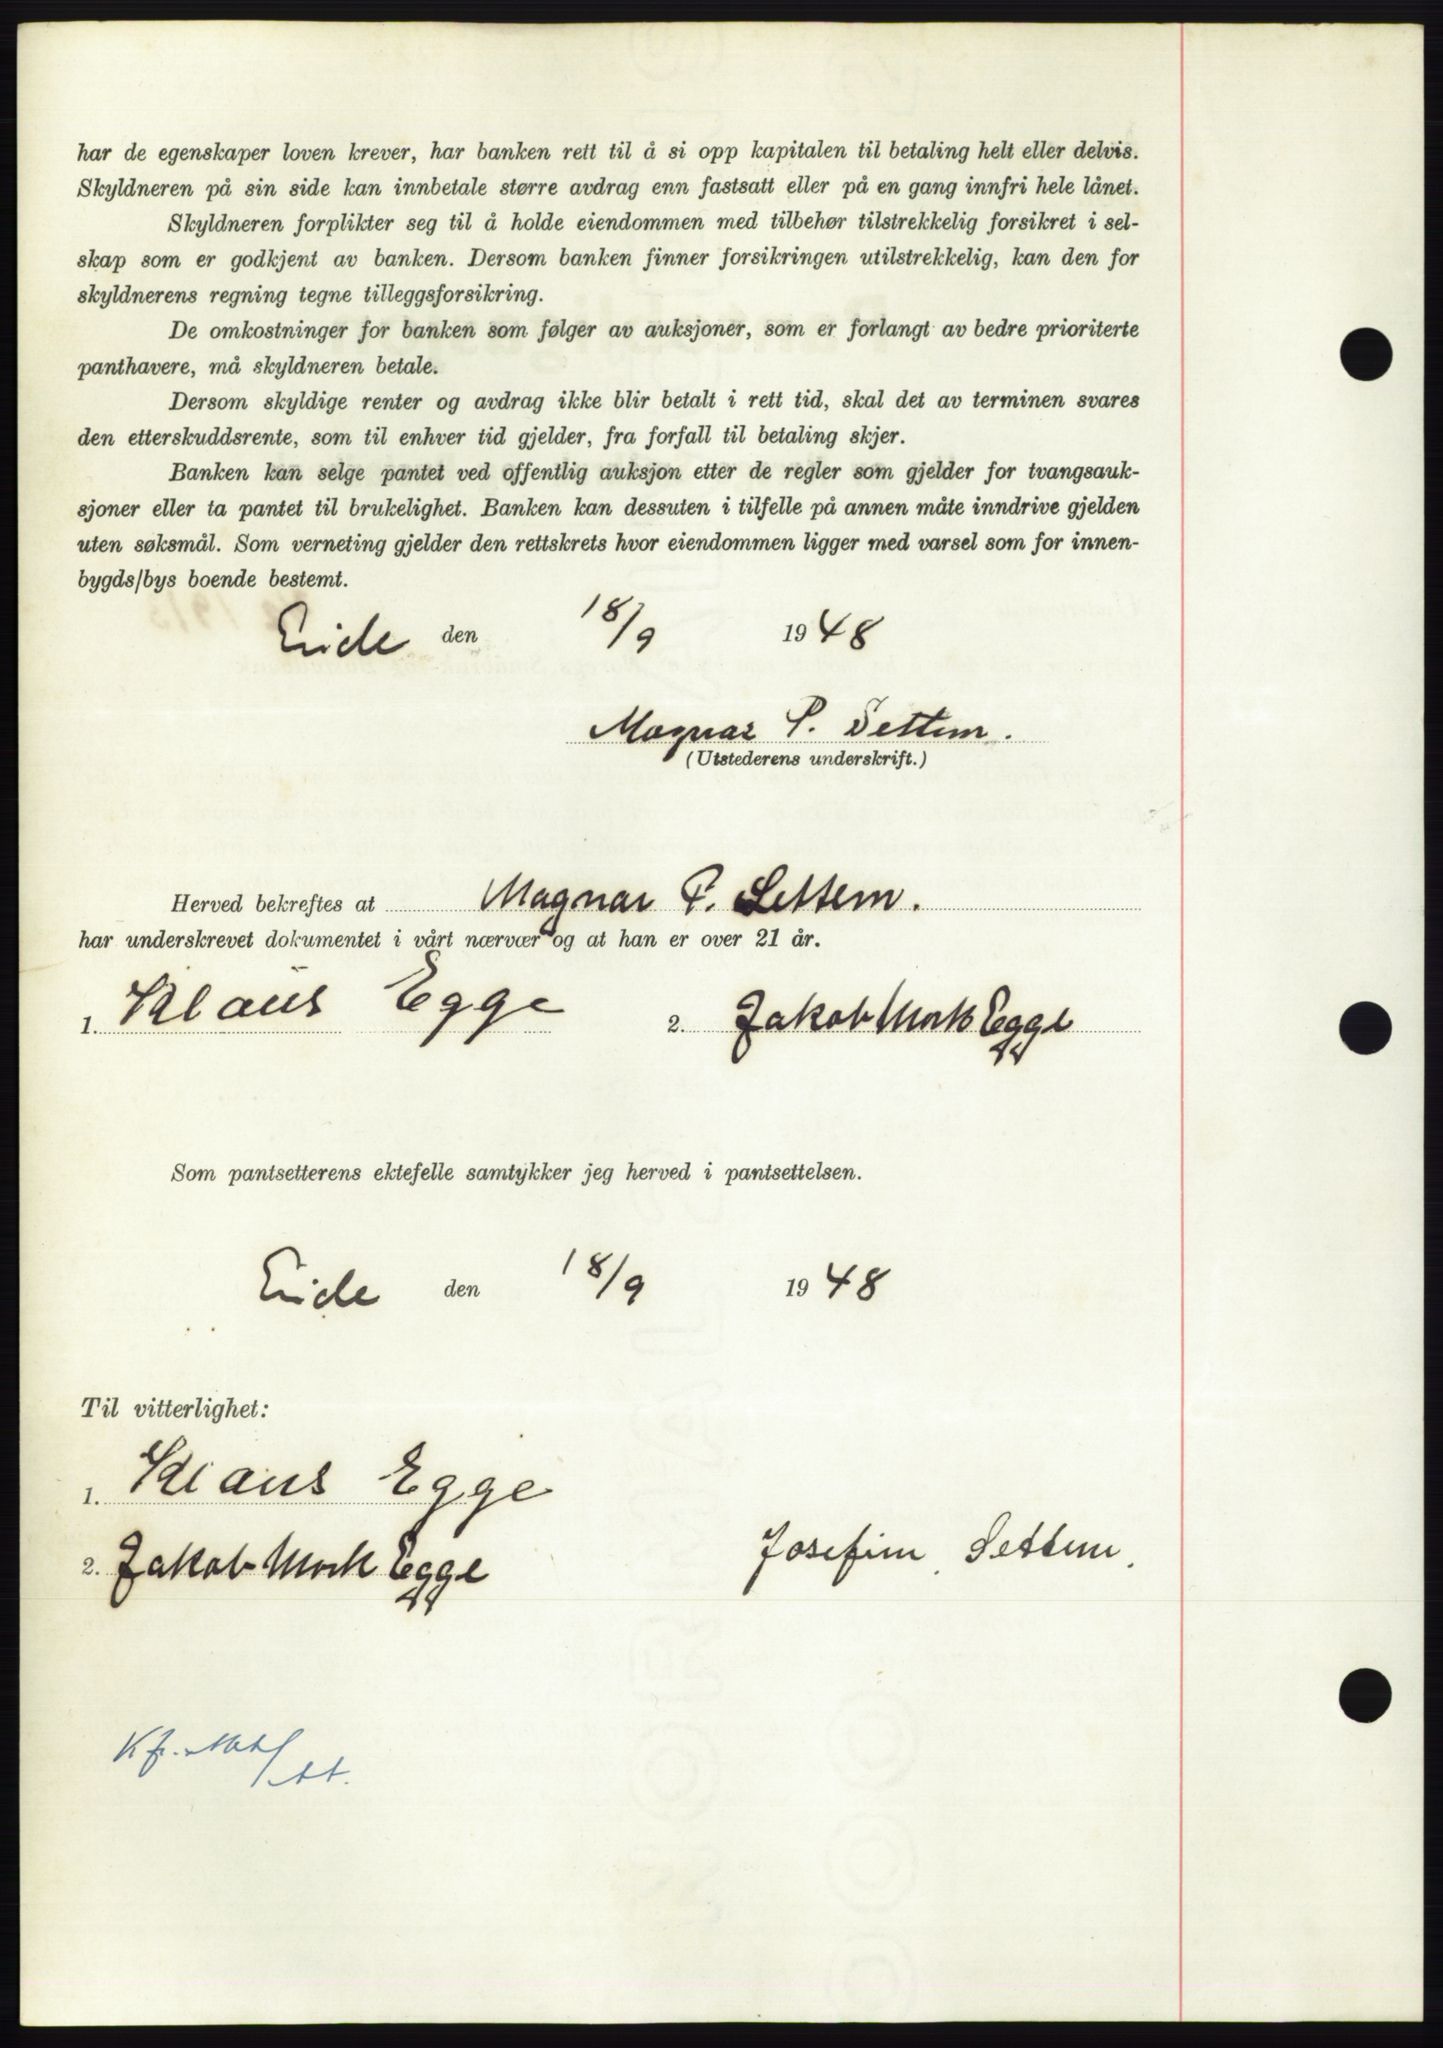 har de egenskaper loven krever, har banken rett til å si opp kapitalen til betaling helt eller delvis.
Skyldneren på sin side kan innbetale større avdrag enn fastsatt eller på en gang innfri hele lånet.
Skyldneren forplikter seg til å holde eiendommen med tilbehør tilstrekkelig forsikret i sel-
skap som er godkjent av banken. Dersom banken finner forsikringen utilstrekkelig, kan den for
skyldnerens regning tegne tilleggsforsikring.
De omkostninger for banken som følger av auksjoner, som er forlangt av bedre prioriterte
panthavere, må skyldneren betale.
Dersom skyldige renter og avdrag ikke blir betalt i rett tid, skal det av terminen svares
den etterskuddsrente, som til enhver tid gjelder, fra forfall til betaling skjer.
Banken kan selge pantet ved offentlig auksjon etter de regler som gjelder for tvangsauk-
sjoner eller ta pantet til brukelighet. Banken kan dessuten i tilfelle på annen måte inndrive gjelden
uten søksmål. Som verneting gjelder den rettskrets hvor eiendommen ligger med varsel som for innen-
bygds/bys boende bestemt.
Eide den 18/9 1948
Magnar P. Settem.
(Utstederens underskrift.)
Herved bekreftes at Magnar P. Settem.
har underskrevet dokumentet i vårt nærvær og at han er over 21 år.
1. Klaus Egge 2. Jakob Mork Egge
Som pantsetterens ektefelle samtykker jeg herved i pantsettelsen.
Eide den 18/9 1948
Til vitterlighet:
1. Klaus Egge
2. Jakob Mork Egge Josefine Settem.